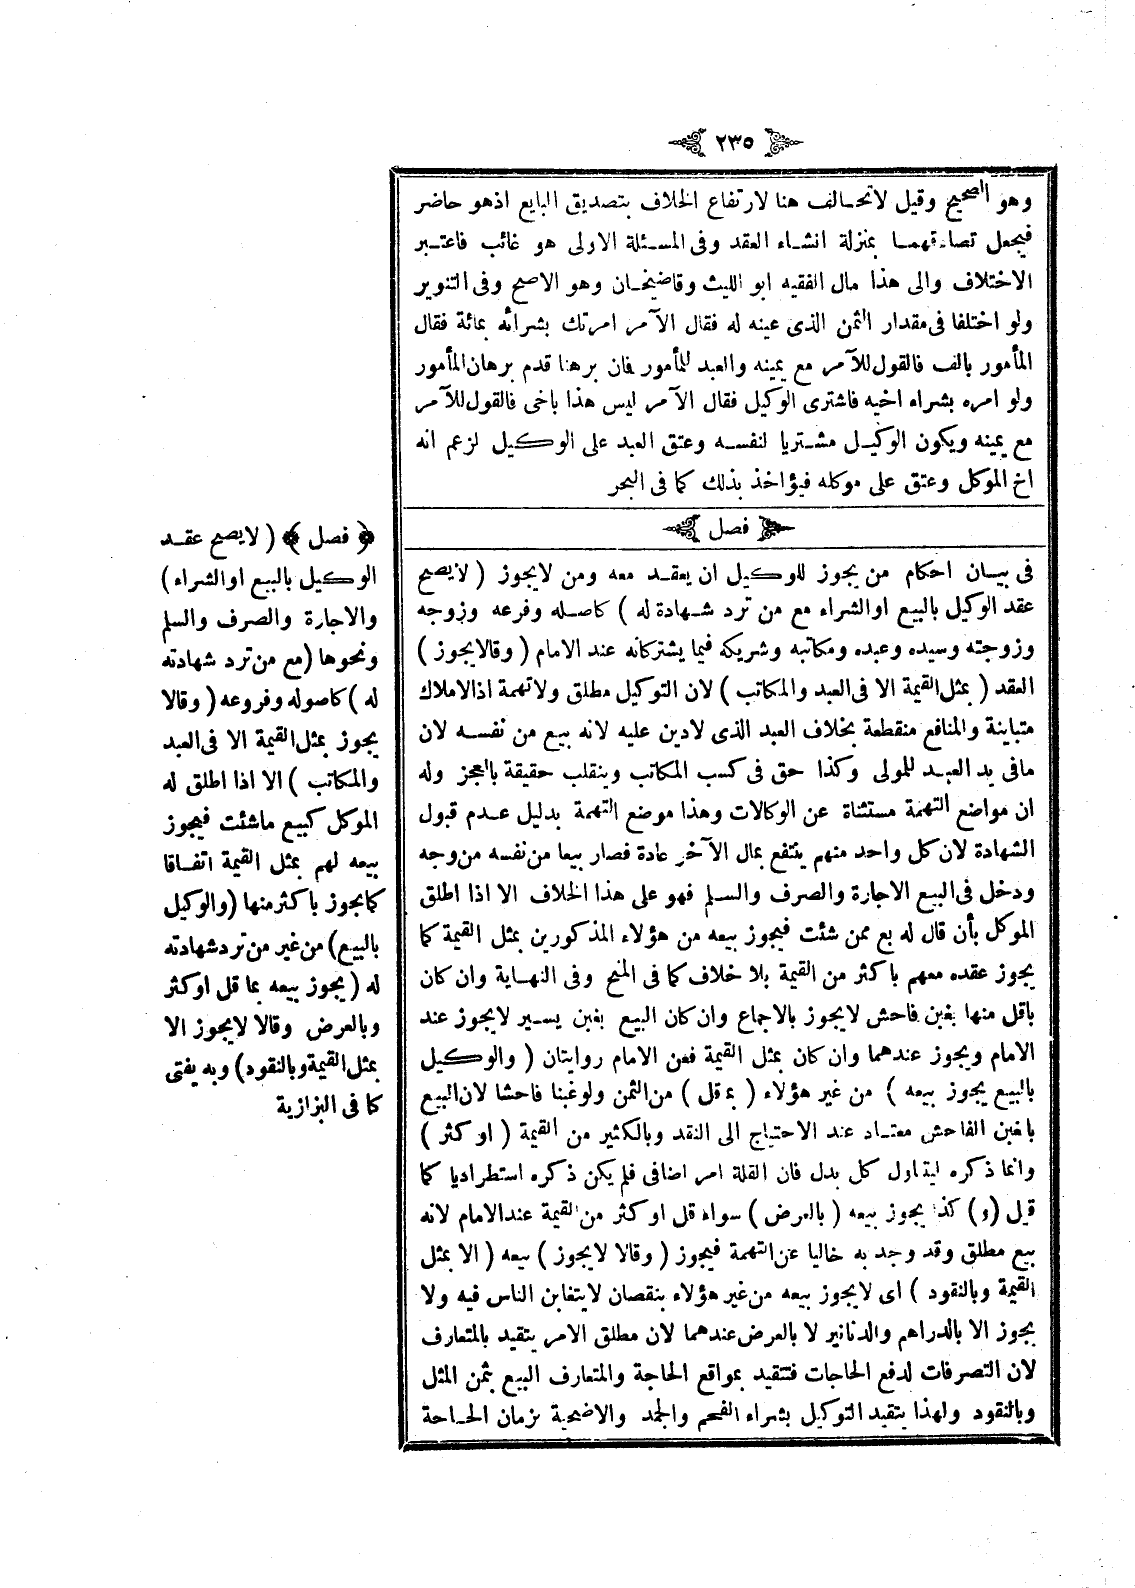 ٢٣٥
وهو الصحيح وقيل لاتحالف هنا لارتفاع الخلاف بتصديق البايع اذهو حاضر
فيجعل تصادقهما بمنزلة انشاء العقد وفى المسئلة الاولى هو غائب فاعتبر
الاختلاف والى هذا مال الفقيه ابو الليث وقاضيخان وهو الاصح وفى التنوير
ولو اختلفا فى مقدار الثمن الذى عينه له فقال الآمر امرتك بشرائه بمائة فقال
المأمور بالف فالقول للآمر مع يمينه والعبد للمأمور فان برهنا قدم برهان المأمور
ولو امره بشراء اخيه فاشترى الوكيل فقال الآمر ليس هذا باخى فالقول للآمر
مع يمينه ويكون الوكيل مشتريا لنفسه وعتق العبد على الوكيل لزعم انه
اخ الموكل وعتق على موكله فيؤاخذ بذلك كما فى البحر
فصل
فى بيان احكام من يجوز للوكيل ان يعقد معه ومن لايجوز ( لايصح
عقد الوكيل بالبيع اوالشراء مع من ترد شهادة له ) كاصله وفرعه وزوجه
وزوجته وسيده وعبده ومكاتبه وشريكه فيما يشتركانه عند الامام ( وقالايجوز )
العقد ( بمثل القيمة الا فى العبد والمكاتب ) لان التوكيل مطلق ولاتهمة اذالاملاك
متباينة والمنافع منقطعة بخلاف العبد الذى لادين عليه لانه بيع من نفسه لان
مافى يد العبد للمولى وكذا حق فى كسب المكاتب وينقلب حقيقة بالعجز وله
ان مواضع التهمة مستثناة عن الوكالات وهذا موضع التهمة بدليل عدم قبول
الشهادة لان كل واحد منهم ينتفع بمال الآخر عادة فصار بيعا من نفسه من وجه
ودخل فى البيع الاجارة والصرف والسلم فهو على هذا الخلاف الا اذا اطلق
الموكل بأن قال له بع ممن شئت فيجوز بيعه من هؤلاء المذكورين بمثل القيمة كما
يجوز عقده معهم باكثر من القيمة بلا خلاف كما فى المنح وفى النهاية وان كان
باقل منها بغبن فاحش لايجوز بالاجماع وان كان البيع بغبن يسير لايجوز عند
الامام ويجوز عندهما وان كان بمثل القيمة فعن الامام روايتان ( والوكيل
بالبيع يجوز بيعه ) من غير هؤلاء ( بما قل ) من الثمن ولوغبنا فاحشا لان البيع
باغبن الفاحش معتاد عند الاحتياج الى النقد وبالكثير من القيمة ( اوكثر )
وانما ذكره ليتداول كل بدل فان القلة امر اضافى فلم يكن ذكره استطراديا كما
قيل (و) كذا يجوز بيعه ( بالعرض ) سواء قل اوكثر من القيمة عندالامام لانه
بيع مطلق وقد وجد به خاليا عن التهمة فيجوز ( وقالا لايجوز ) بيعه ( الا بمثل
القيمة وبالنقود ) اى لايجوز بيعه من غير هؤلاء بنقصان لايتغابن الناس فيه ولا
يجوز الا بالدراهم والدنانير لا بالعرض عندهما لان مطلق الامر يتقيد بالمتعارف
لان التصرفات لدفع الحاجات فتتقيد بمواقع الحاجة والمتعارف البيع بثمن المثل
وبالنقود ولهذا يتقيد التوكيل بشراء الفحم والجمد والاضحية بزمان الحاجة
﴿ فصل ﴾ ( لايصح عقد
الوكيل بالبيع اوالشراء )
والاجارة والصرف والسلم
ونحوها (مع من ترد شهادته
له ) كاصوله وفروعه ( وقالا
يجوز بمثل القيمة الا فى العبد
والمكاتب ) الا اذا اطلق له
الموكل كبيع ماشئت فيجوز
بيعه لهم بمثل القيمة اتفاقا
كمايجوز باكثر منها (والوكيل
بالبيع) من غير من ترد شهادته
له ( يجوز بيعه بما قل اوكثر
وبالعرض وقالا لايجوز الا
بمثل القيمة وبالنقود) وبه يفتى
كما فى البزازية